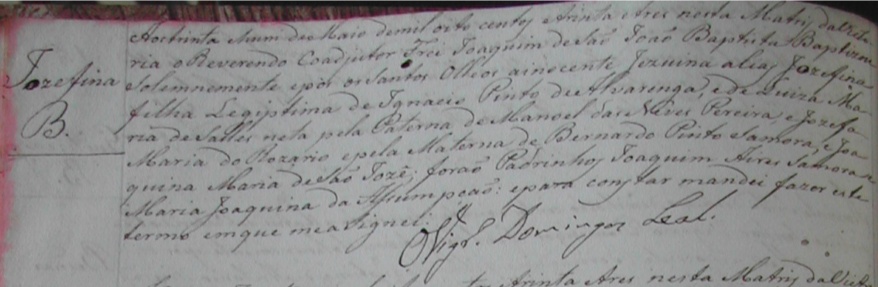 Jozefina
B.
Aos trinta e hum de Maio de mil oito centos e trinta e tres nesta Matris da Victo
ria o Reverendo Coadjutor Frei Joaquim de São João Baptista Baptizou
Solemnemente e pos os Santos Olleos a inocente Jezuina alias Jozefina
filha Legiptima de Ignacio Pinto de Alvarenga, e de Luiza Ma
ria de Salles neta pela Paterna de Manoel das Neves Pereira, e Jozefa
Maria do Rozario e pela Materna de Bernardo Pinto e Samora, e Joa
quina Maria de São Jozé; forão Padrinhos Joaquim Aires Samora e
Maria Joaquina da Assumpção: e para constar mandei fazer este
termo em que me asignei.
O Vigr.º Domingos Leal.
trinta e tres nesta Matris da Victo